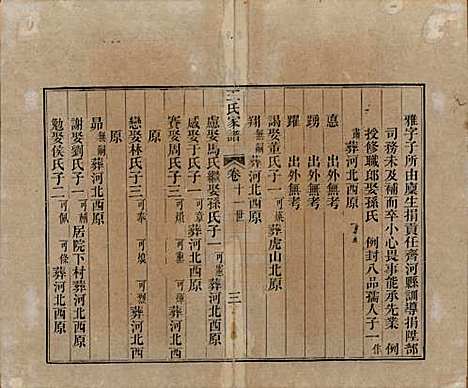 雅字子所由廩生捐貢任齊河縣訓導捐陞部
司務未及補而卒小心畏事能承先業 例
授修職郎娶孫氏 例封八品孺人子一
葬河北西原
惪 出外無考
踴 出外無考
躍 出外無考
謁娶董氏子一 葬虎山北原
翔 無嗣 葬河北西原
王氏家譜 卷 十一世 三
慮娶馬氏繼娶孫氏子一
感娶于氏子一 可章 葬河北西原
賚娶周氏子三 葬河北西
原
戀娶林氏子三 可奉 葬河北西
原
昴 無嗣 葬河北西原
謝娶劉氏子一 居院下村葬河北西原
勉娶侯氏子二 可佩 葬河北西原